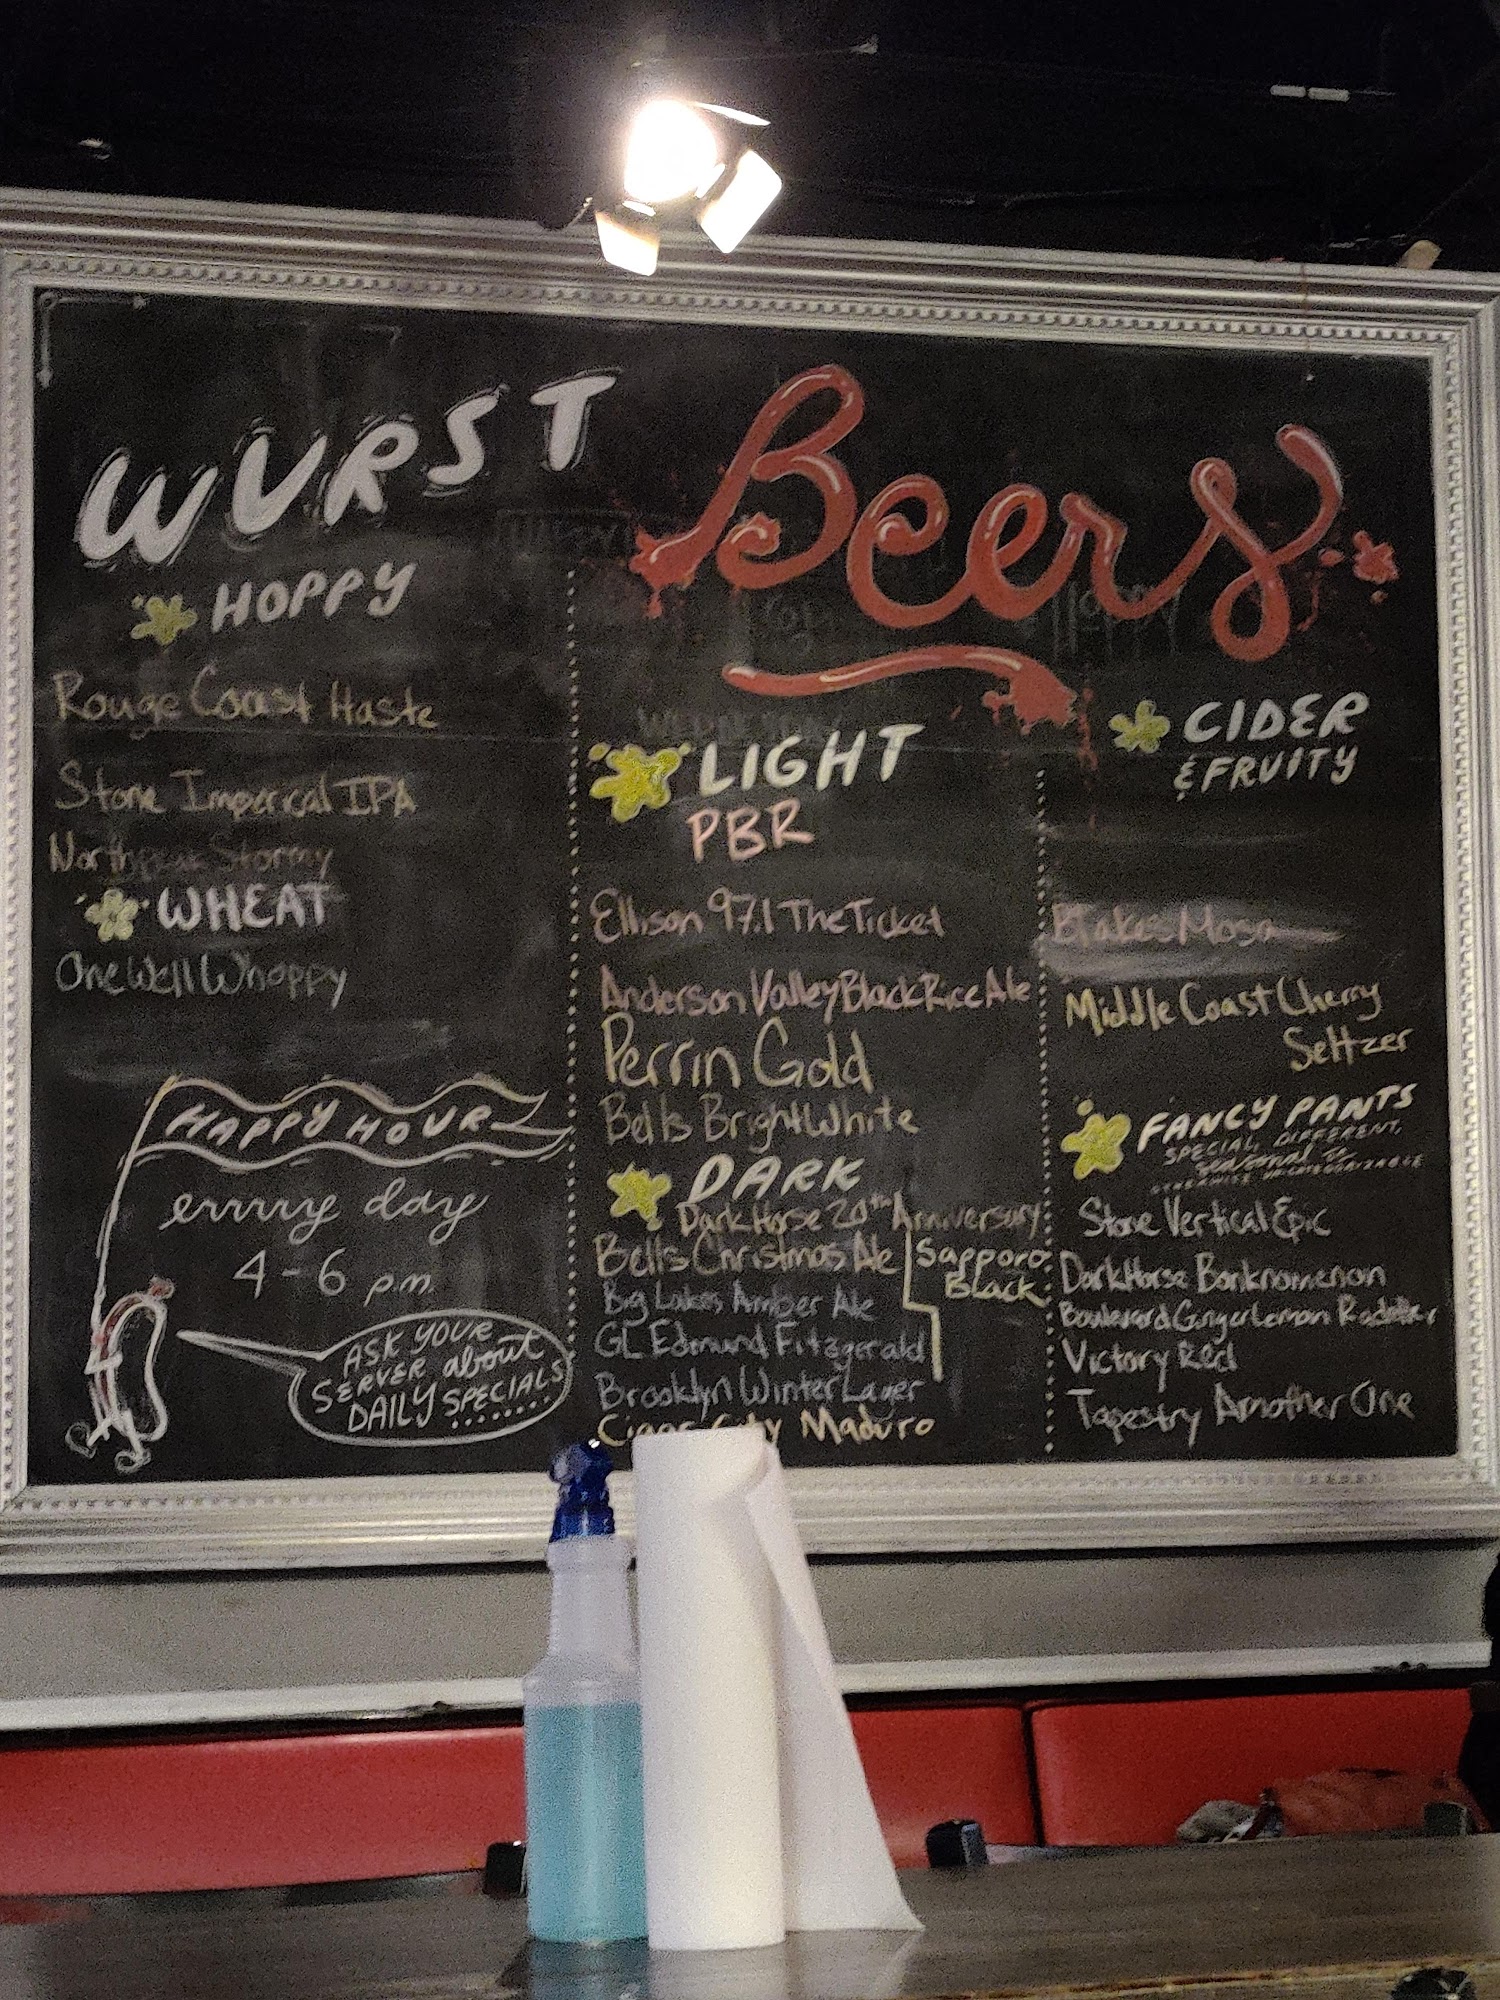 WURST Beers
HOPPY
Rouge Coast Haste
Stone Imperical IPA
Stormy
WHEAT
One Well Whoppy
HAPPY HOUR
errrry day
4-6 p.m.
ASK YOUR
SERVER about
DAILY SPECIALS
LIGHT
PBR
Ellison 97.1 The Ticket
Anderson Valley Black Rice Ale
Perrin Gold
Bells Bright White
DARK
Dark Horse 20th Anniversary
Bells Christmas Ale
Sapporo
Black
Big Lakes Amber Ale
GL Edmund Fitzgerald
Brooklyn Winter Lager
Maduro
CIDER
& FRUITY
Blakes
Middle Coast Cherry
Seltzer
FANCY PANTS
SPECIAL, DIFFERENT,
Seasonal or
OTHERWISE UNCATEGORIZABLE
Stone Vertical Epic
Dark Horse
Boulevard Ginger Lemon
Victory Red
Tapestry Another One